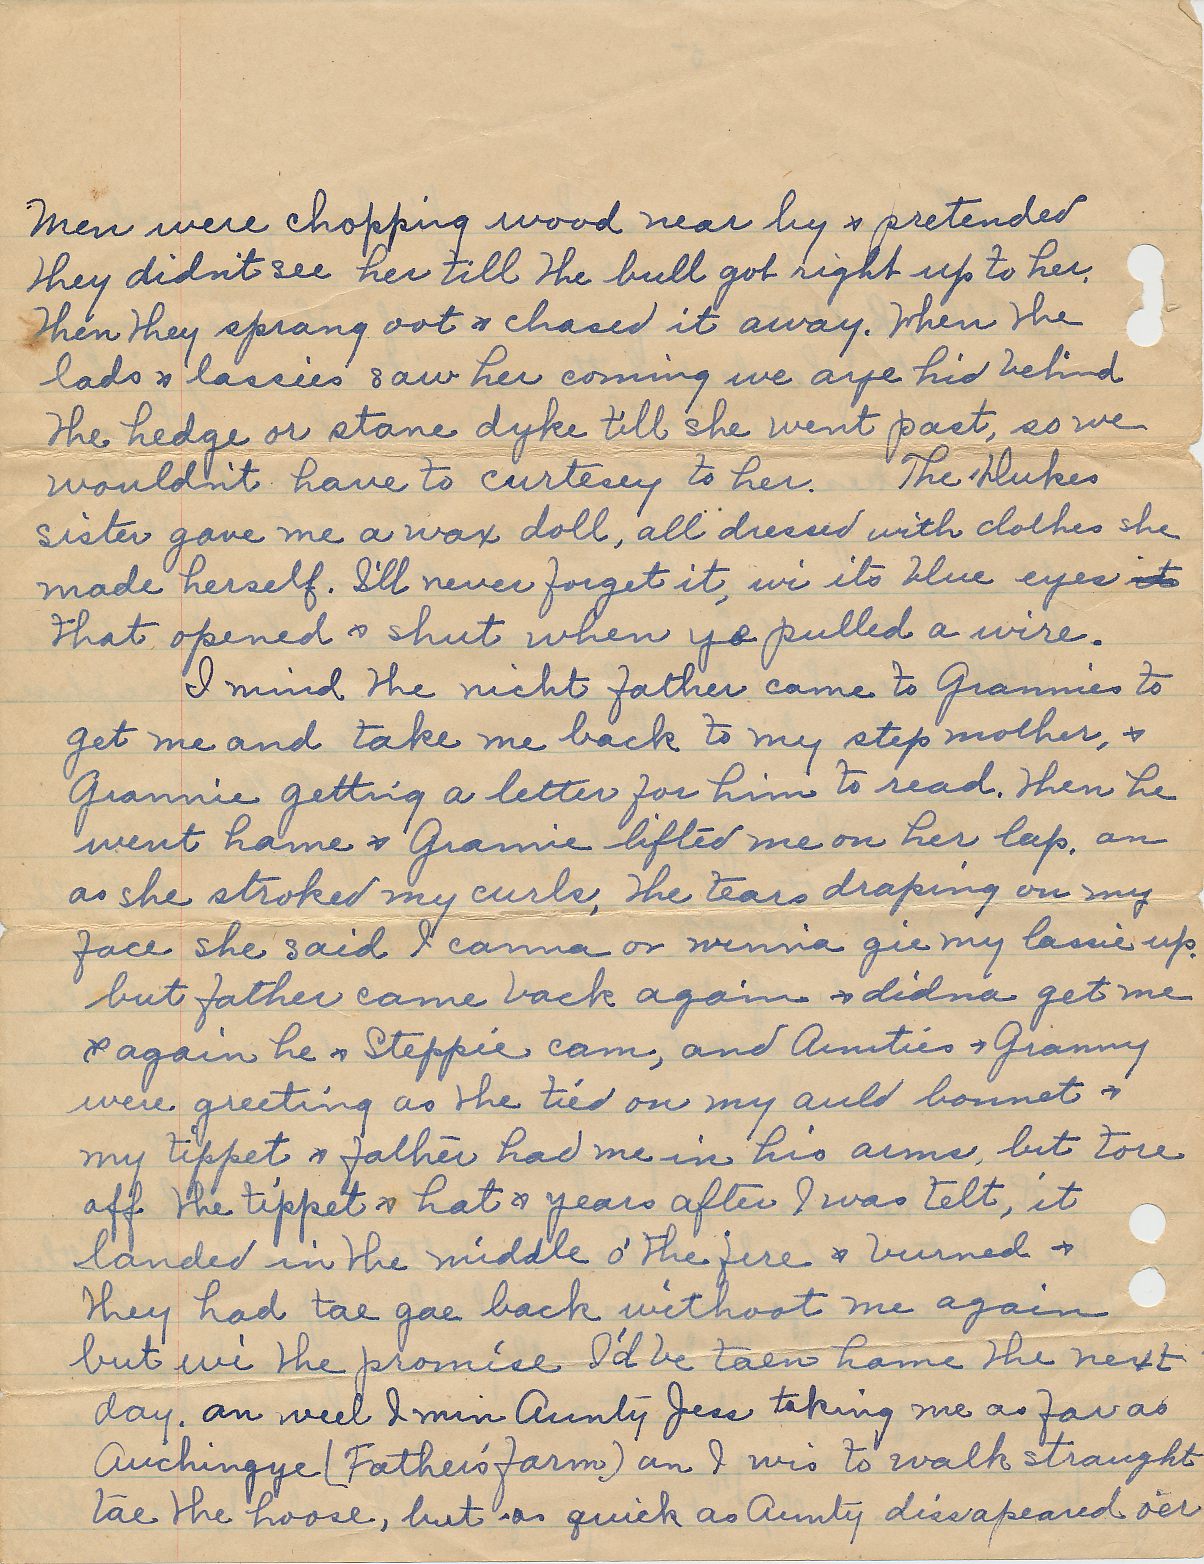 Men were chopping wood near by & pretended
they didn't see her till the bull got right up to her.
Then they sprang oot & chased it away. When the
lads & lassies saw her coming we aye hid behind
the hedge or stane dyke till she went past, so we
wouldn't have to curtesey to her. The Dukes
sister gave me a wax doll, all dressed with clothes she
made herself. I'll never forget it, wi its blue eyes it
that opened & shut when ye pulled a wire.
I mind the nicht father came to Grannies to
get me and take me back to my step mother, &
Grannie getting a letter for him to read. Then he
went hame & Grannie lifted me on her lap. an
as she stroked my curls, the tears draping on my
face she said I canna or winna gie my lassie up.
but father came back again & didna get me
& again he & Steppie cam, and Aunties & Granny
were greeting as the tied on my auld bonnet &
my tippet & father had me in his arms, but tore
off the tippet & hat & years after I was telt, it
landed in the middle o' the fire & burned &
they had tae gae back withoot me again
but wi the promise I'd be taen hame the next
day. an weel I min Aunty Jess taking me as far as
Auchingye (Father's farm) an I wis to walk straught
tae the hoose, but as quick as Aunty dissapeared o'er